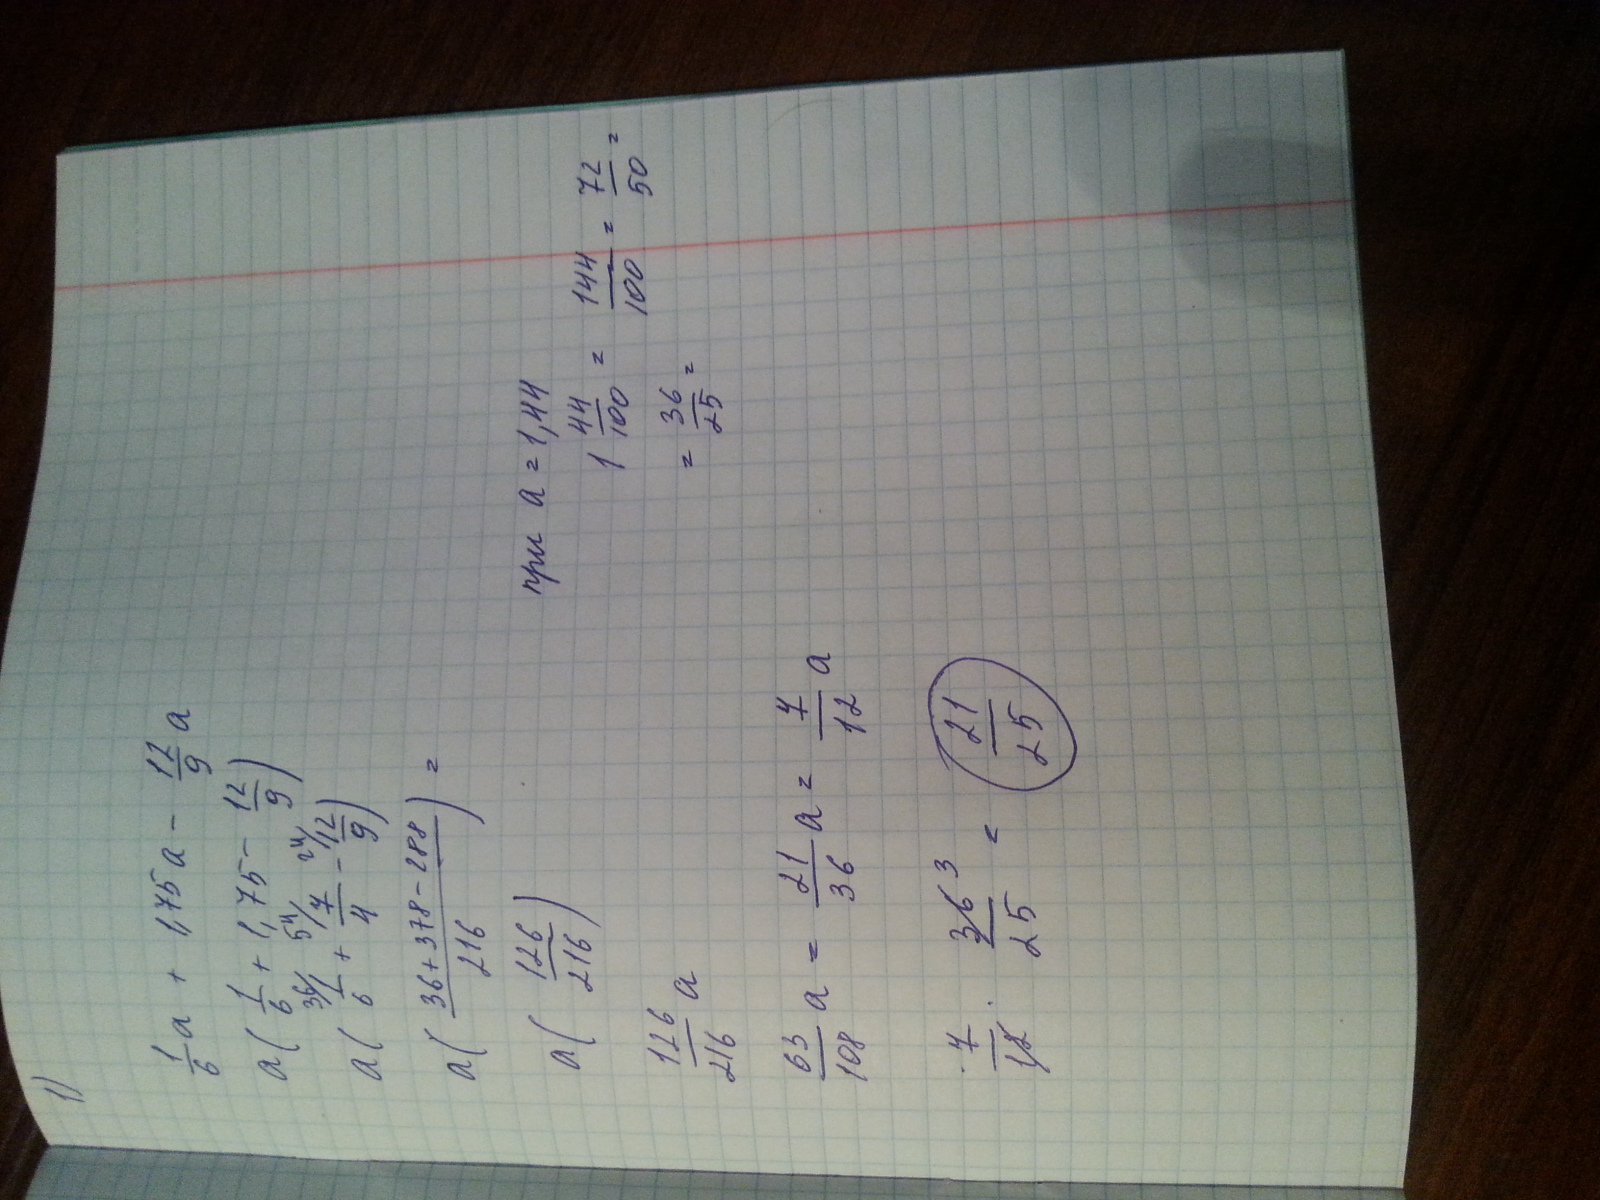 1)
1/6 a + 1,75a - 12/9 a
a( 1/6 + 1,75 - 12/9 )
a( 36/ 1/6 + 54/ 7/4 - 24/ 12/9 )
a( (36+378-288)/216 ) =
a( 126/216 )
126/216 a
63/108 a = 21/36 a = 7/12 a
7/12 · 36 3/25 = 21/25
при a = 1,44
1 44/100 = 144/100 = 72/50 =
= 36/25 =